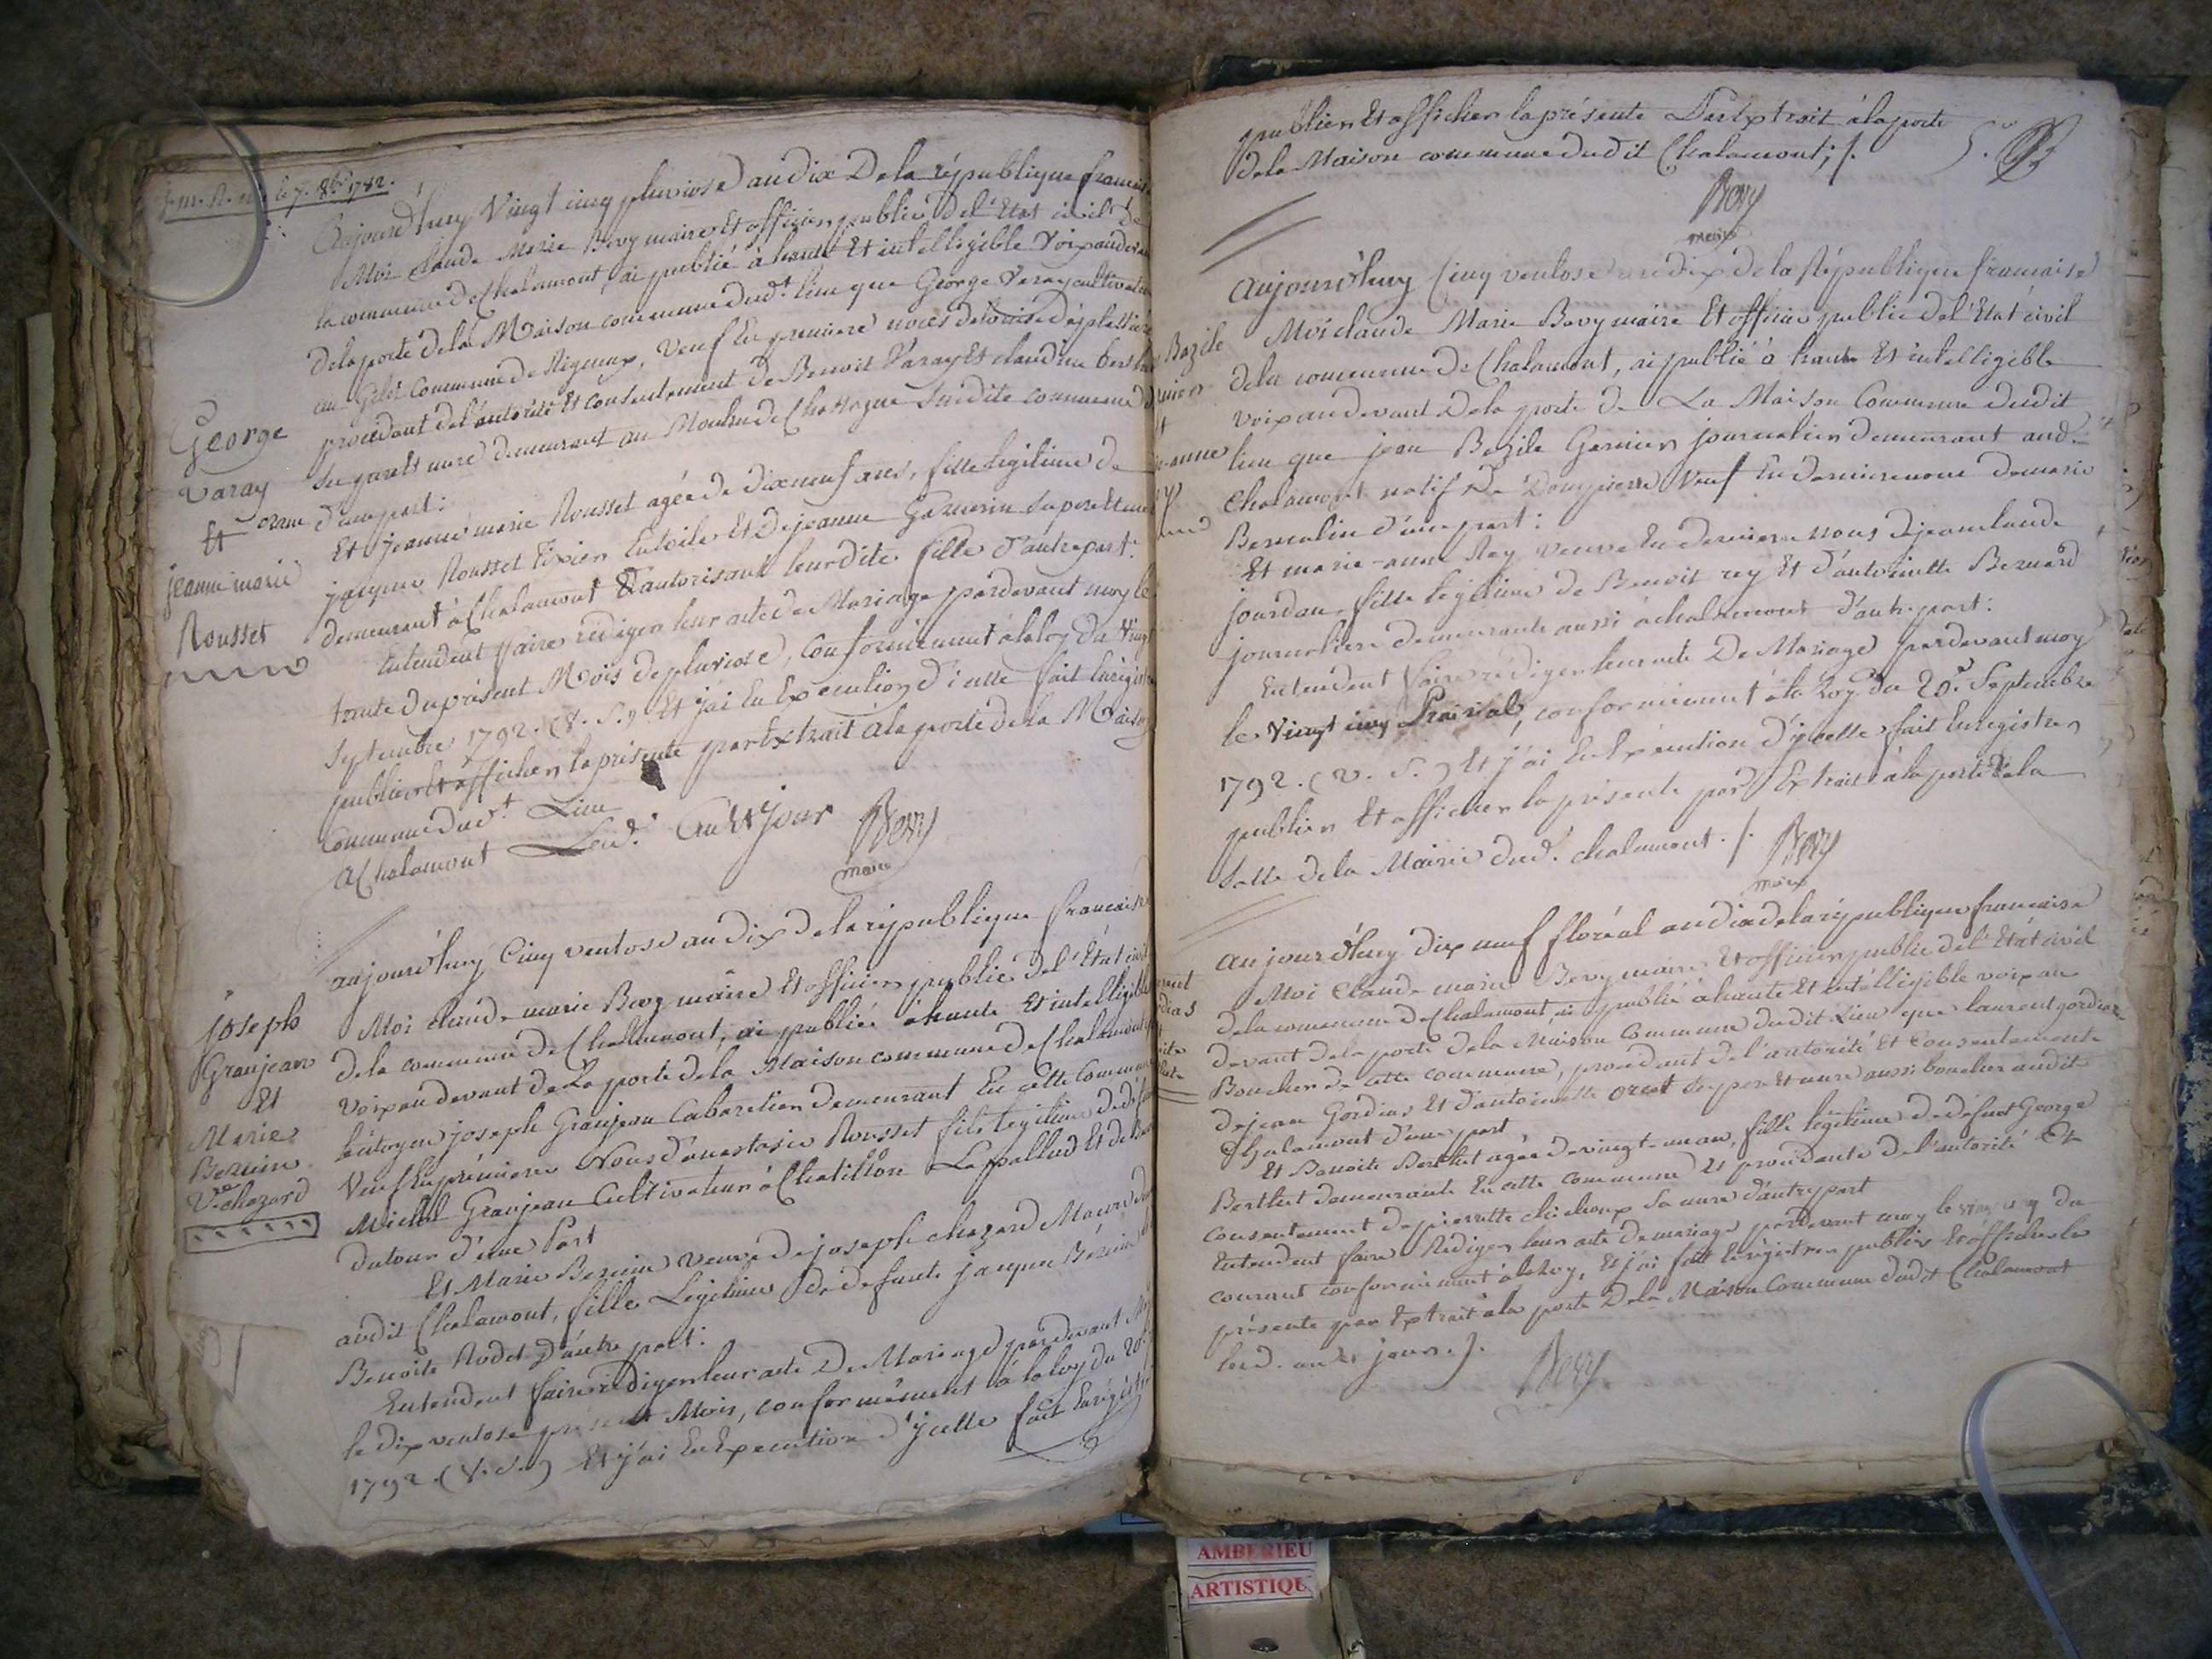 Aujourd'huy Vingt cinq pluviose an dix De la république francaise
Moi Claude Marie Bevy maire Et officier public de l'Etat civil de
la commune de Chalamont, ai publié à haute Et intelligible Voix au devant
de la porte de la Maison commune dud.t lieu que George Varay cultivateur
commune de Rigneux, Veuf En premiere noces de
procedant de l'autorité Et consentement de Benoit Varay Et claudine
Ses pere et mere demeurant au Moulin de Chassagne Susdite commune de
crane d'une part:
Et jeanne marie Rousset agée de dix neuf ans, fille legitime de
jacques Rousset Tixier En toile Et De jeanne Garnerin Ses pere Et mere
demeurant à Chalamont Et autorisant leurdite fille d'autre part:
Entendent faire rediger leur acte de Mariage pardevant moy le
trente du présent Mois de pluviose, Conformément à la loy du Vingt
Septembre 1792. (V. S.) Et j'ai En Execution d'icelle fait Enrégistrer
publier Et afficher la présente par Extrait à la porte de la Maison
Commune dud.t Lieu
A Chalamont Led. An Et jour Bevy
maire
George
Varay
Et
jeanne marie
Rousset
aujourd'huy Cinq ventose an dix de la république francaise
Moi claude marie Bevy maire Et officier public de l'Etat civil
de la commune de Chalamont, ai publié à haute Et intelligible
voix au devant de La porte de la Maison commune de Chalamont
le citoyen joseph Granjean Cabaretier Demeurant En cette Commune
Veuf En premiere Nous d'anastasie Rousset fils legitime de défunt
Michel Granjean Cultivateur à Chatillon La palud Et de
dutour d'une Part
Et Marie Bernin Veuve de joseph chazard
audit Chalamont, fille Légitime de defunte jacques Bernin
Benoite Rodet D'autre part:
Entendent faire rédiger leur acte De Mariage pardevant
le dix ventose présent Mois, conformément à la loy du 20
1792. (V. S.) Et j'ai En Execution d'ycelle fait Enrégistrer
joseph
Granjean
Et
Marie
Bernin
V.ve chazard
publier Et afficher la présente Par Extrait à la porte
de la Maison commune dudit Chalamont; /.
Bevy
maire
Aujourd'huy Cinq ventose an dix de la République francaise
Moi claude Marie Bevy maire Et officier public de l'Etat civil
de la commune de Chalamont, ai publié à haute Et intelligible
voix au devant De la porte de La Maison Commune dudit
lieu que jean Bazile Garnier journalier demeurant aud.t
Chalamont natif De Dompierre Veuf En derniere noce de marie
Bernalin d'une part:
Et marie-anne Rey veuve En derniere nous de jean claude
jourdan fille légitime de Benoit rey Et d'antoinette Bernard
journaliere demeurante aussi à chalamont d'autre part:
Entendent faire rédiger leur acte De Mariage pardevant moy
le Vingt cinq Prairial, conformément à la Loy du 20.e Septembre
1792. (v. S.) Et j'ai En Exécution d'ycelle fait Enregistrer
publier Et afficher la présente par Extrait à la porte de la
Salle de la Mairie dud.t chalamont. /. Bevy
maire
aujourd'huy dix neuf floréal an dix de la république francaise
Moi Claude marie Bevy maire Et officier public de l'Etat civil
de la commune de Chalamont, ai publié à haute Et intelligible voix au
devant de la porte de la Maison Commune dudit Lieu que laurent gordias
Boucher de cette commune, procédant de l'autorité Et Consentement
de jean Gordias Et d'antoinette Ses pere Et mere aussi boucher audit
Chalamont d'une part
Et Benoite Berthet agée de vingt-un an, fille légitime de défunt George
Berthet demeurante En cette commune Et procédante de l'autorité Et
consentement de pierrette Sa mere d'autre part
Entendent faire Rédiger leur acte de mariage pardevant moy le du
courant conformément à la Loy, Et j'ai fait Enrégistrer publier Et afficher la
présente par Extrait à la porte De la Maison Commune dudit Chalamont
les d. an Et jour. /.
Bevy
AMBERIEU
ARTISTIQU